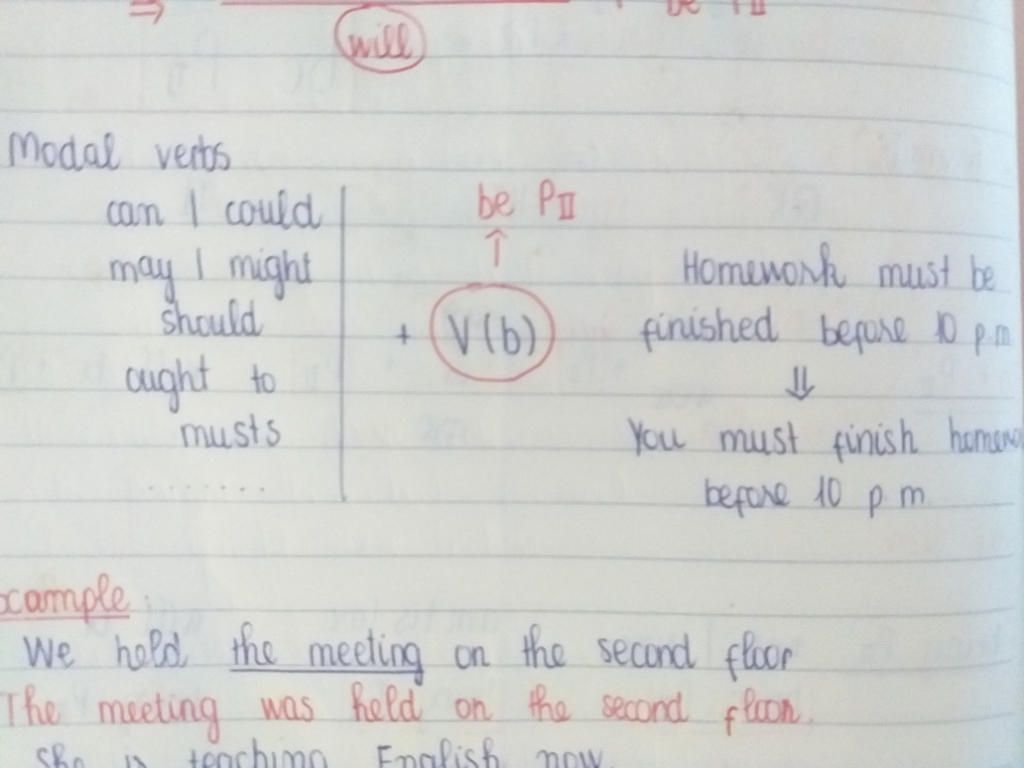 ⇒ + be PII
will
Modal verbs
can | could
may | might
should
ought to
musts
........
be PII
↑
+ V(b)
Homework must be
finished before 10 p.m
⇓
You must finish
before 10 p.m
xample:
We held the meeting on the second floor
The meeting was held on the second floor.
She is teaching English now.